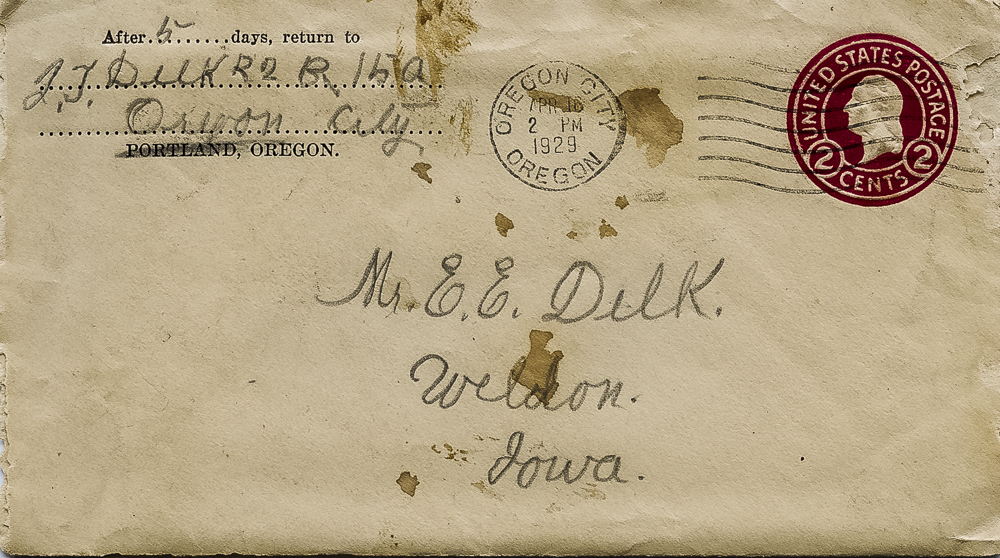 After. 5 ......days, return to
J.J. Delk R2 B. 15 A
Oregon City
PORTLAND, OREGON.
OREGON CITY
APR 16
2 PM
1929
OREGON
UNITED STATES POSTAGE
2 CENTS 2
Mr. E. E. Delk.
Weldon.
Iowa.